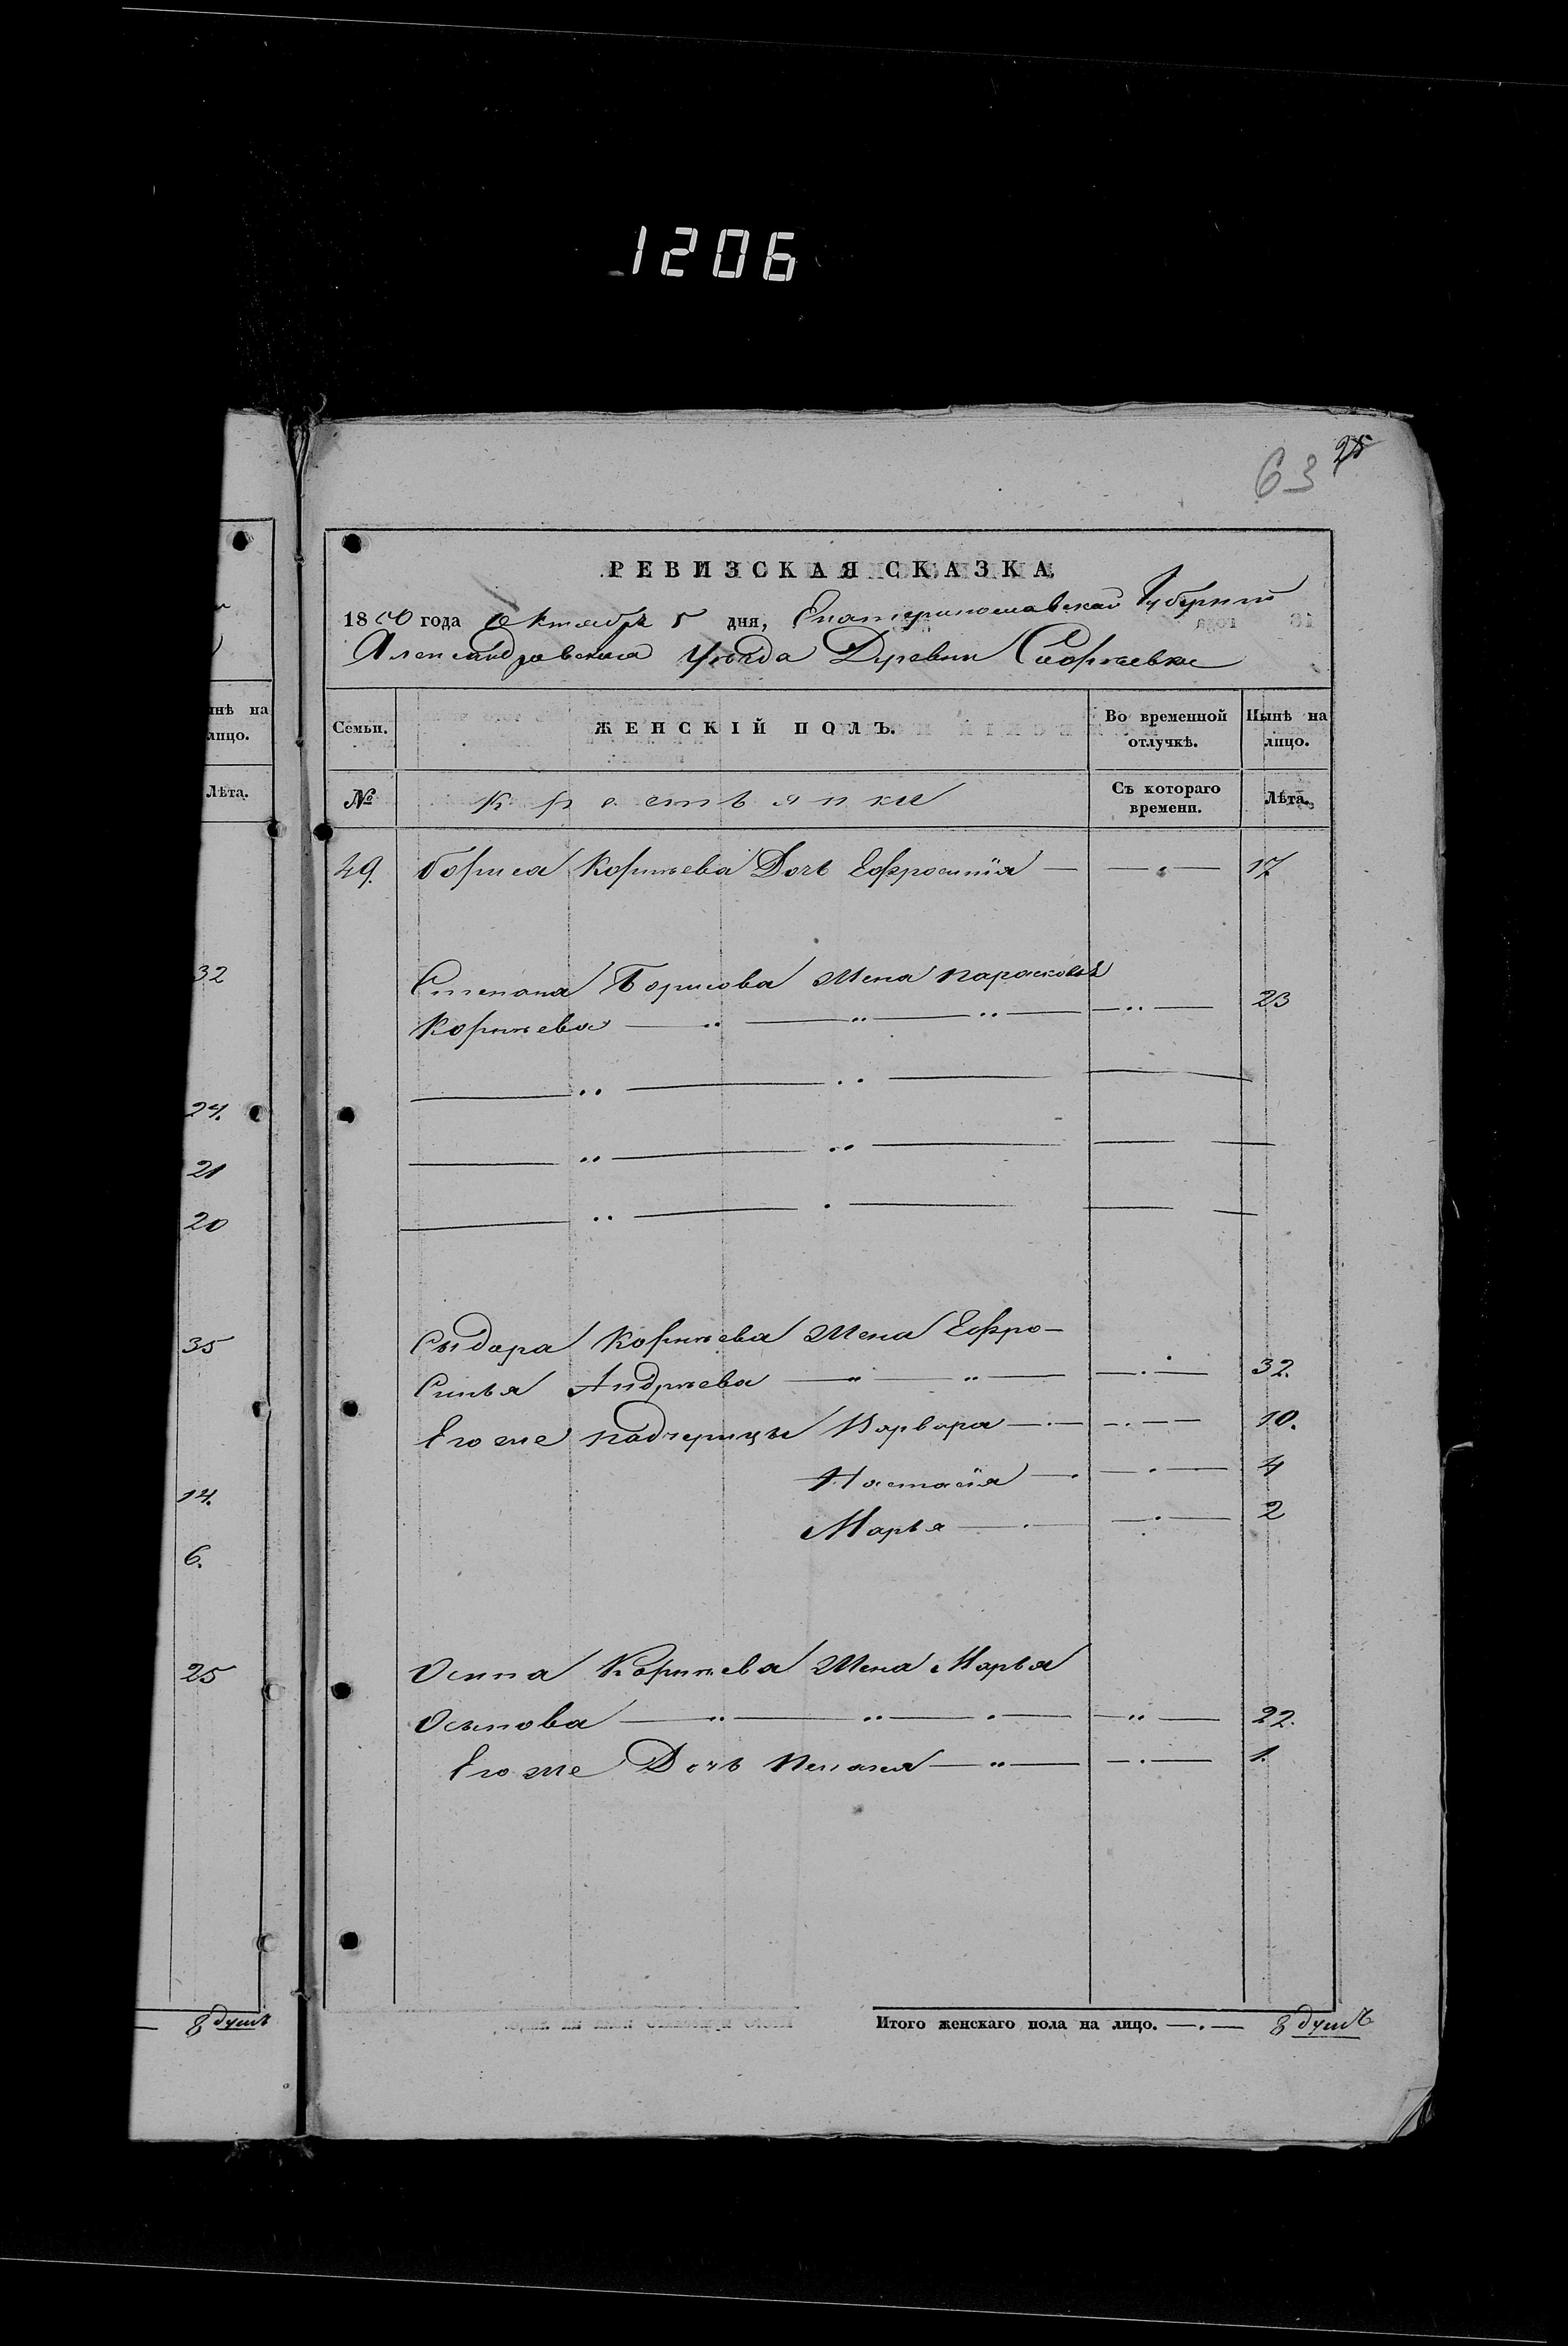 1206
63 25
нѣ на
лицо.
Лѣта.
32
24.
21
20
35
14.
6.
25
8 душъ
РЕВИЗСКАЯ СКАЗКА
1850 года Октября 5 дня, Екатеринославской Губерніи
Александровскаго Уѣзда Деревни
Семьи. ЖЕНСКІЙ ПОЛЪ. Во временной отлучкѣ. Нынѣ на лицо.
№ Крестьянки Съ котораго времени. Лѣта.
49. Бориса Корнѣева Дочь Ефросинія — — 17
Степана Борисова Жена Парасковья
Корнѣева — — — — 23
Сыдора Корнѣева Жена Ефро-
синья Андрѣева — — — 32.
Его же падчерицы Варвара — — 10.
Настасія — — 4
Марья — — 2
Осипа Корнѣева Жена Марья
Осипова — — — — 22.
Его же Дочь Пелагея — — 1.
Итого женскаго пола на лицо. — 8 душъ